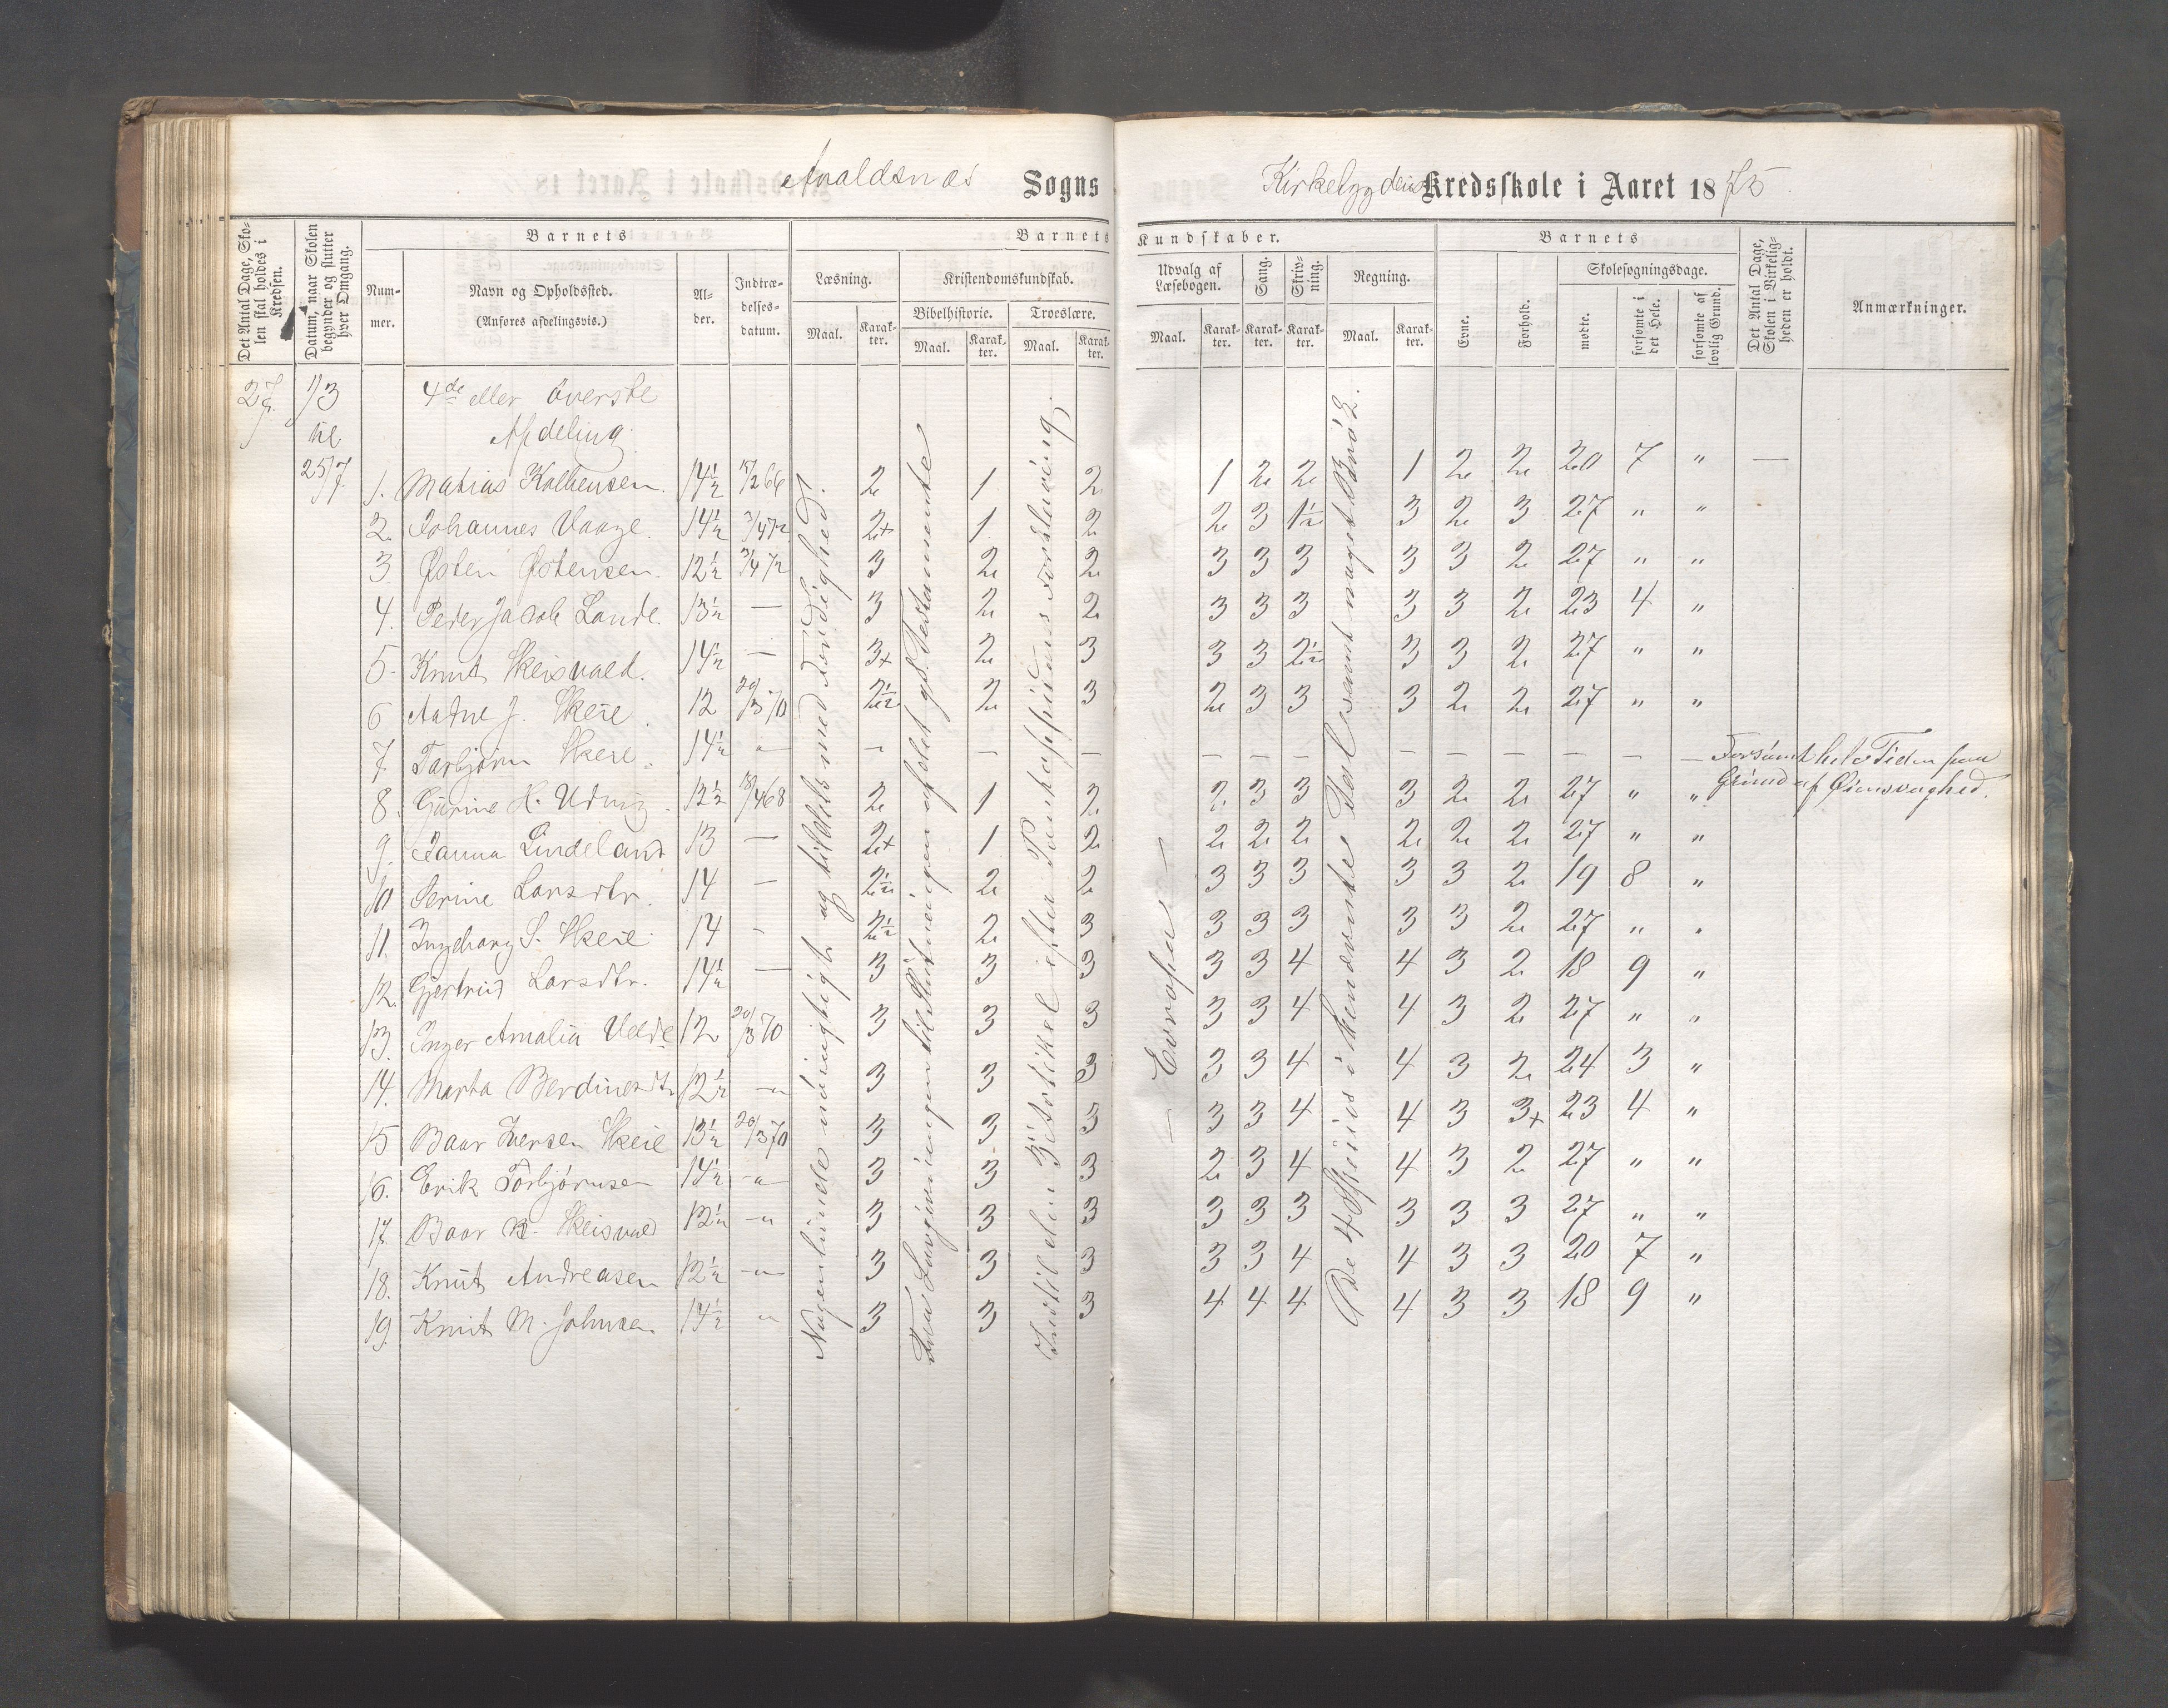 Avaldsnæs Sogns Kirkebygdens Kredsskole i Aaret 1875
Det Antal Dage, Skolen skal holdes i Kredsen.
Datum, naar Skolen begynder og slutter hver Omgang.
Barnets
Nummer.
Navn og Opholdssted.
(Anføres afdelingsvis.)
Alder.
Indtrædelsesdatum.
Barnets Kundskaber.
Læsning. Kristendomskundskab. Udvalg af Læsebogen. Sang. Skrivning. Regning.
Bibelhistorie. Troeslære.
Maal. Karakter. Maal. Karakter. Maal. Karakter. Maal. Karakter. Karakter. Karakter. Maal. Karakter.
Barnets
Evne. Forhold. Skolesøgningsdage.
mødte. forsømte i det Hele. forsømte af lovlig Grund.
Det Antal Dage, Skolen i Virkeligheden er holdt.
Anmærkninger.
27. 1/3 til 25/7
4de eller øverste
Afdeling
1. Matias Kolbensen. 14½ 15/2 66 2 1 2 1 2 2 1 2 2 20 7 " —
2. Johannes Vaage. 14½ 3/4 72 2+ 1 2 2 3 1½ 3 2 3 27 " "
3. Østen Østensen. 12½ 3/4 72 3 2 2 3 3 3 3 3 2 27 " "
4. Peder Jacob Lande. 13½ — 3 2 2 3 3 3 3 3 2 23 4 "
5. Knut Skeisvold. 14½ — 3+ 2 3 3 3 2½ 3 3 2 27 " "
6 Aadne J. Skeie. 12 20/3 70 2½ 2 3 2 3 3 3 2 2 27 " "
7 Torbjørn Skeie. 14½ " — — — — — — — — — — — — Forsømt hele Tiden paa
Grund af Øiensvaghed.
8. Gurine H. Utvig. 12½ 18/4 68 2 1 2 2 3 3 3 2 2 27 " "
9. Janna Lindeland 13 — 2+ 1 2 2 2 2 2 2 2 27 " "
10 Serine Larsdtr. 14 — 2½ 2 2 3 3 3 3 3 2 19 8 "
11. Ingeborg S. Skeie 14 - 2½ 2 3 3 3 3 3 3 2 27 " "
12. Gjertrud Larsdtr. 14½ — 3 3 3 3 3 4 4 3 2 18 9 "
13. Inger Amalia Velde 12 20/3 70 3 3 3 3 3 4 4 3 2 27 " "
14. Marta Berdinesdtr 12½ -"- 3 3 3 3 3 4 4 3 2 24 3 "
15 Baar Iversen Skeie 13½ 20/3 70 3 3 3 3 3 4 4 3 3+ 23 4 "
16. Erik Torbjørnsen 14½ -"- 3 3 3 2 3 4 4 3 2 27 " "
17. Baar B. Skeisvold 12½ -" 3 3 3 3 3 3 3 3 3 27 " "
18. Knut Andreasen 12½ -"- 3 3 3 3 3 4 4 3 3 20 7 "
19. Knut M. Johnsen 14½ " 3 3 3 4 4 4 4 3 3 18 9 "
Nogenlunde nöiagtighed og tildels med Færdighed.
Fra til Slutningen af det gl. Testamente
Indtil den 3die Artikel efter Pontoppidans Forklaring.
— Evropa —
De 4 Species i ubenævnte Tal samt noget Brök.